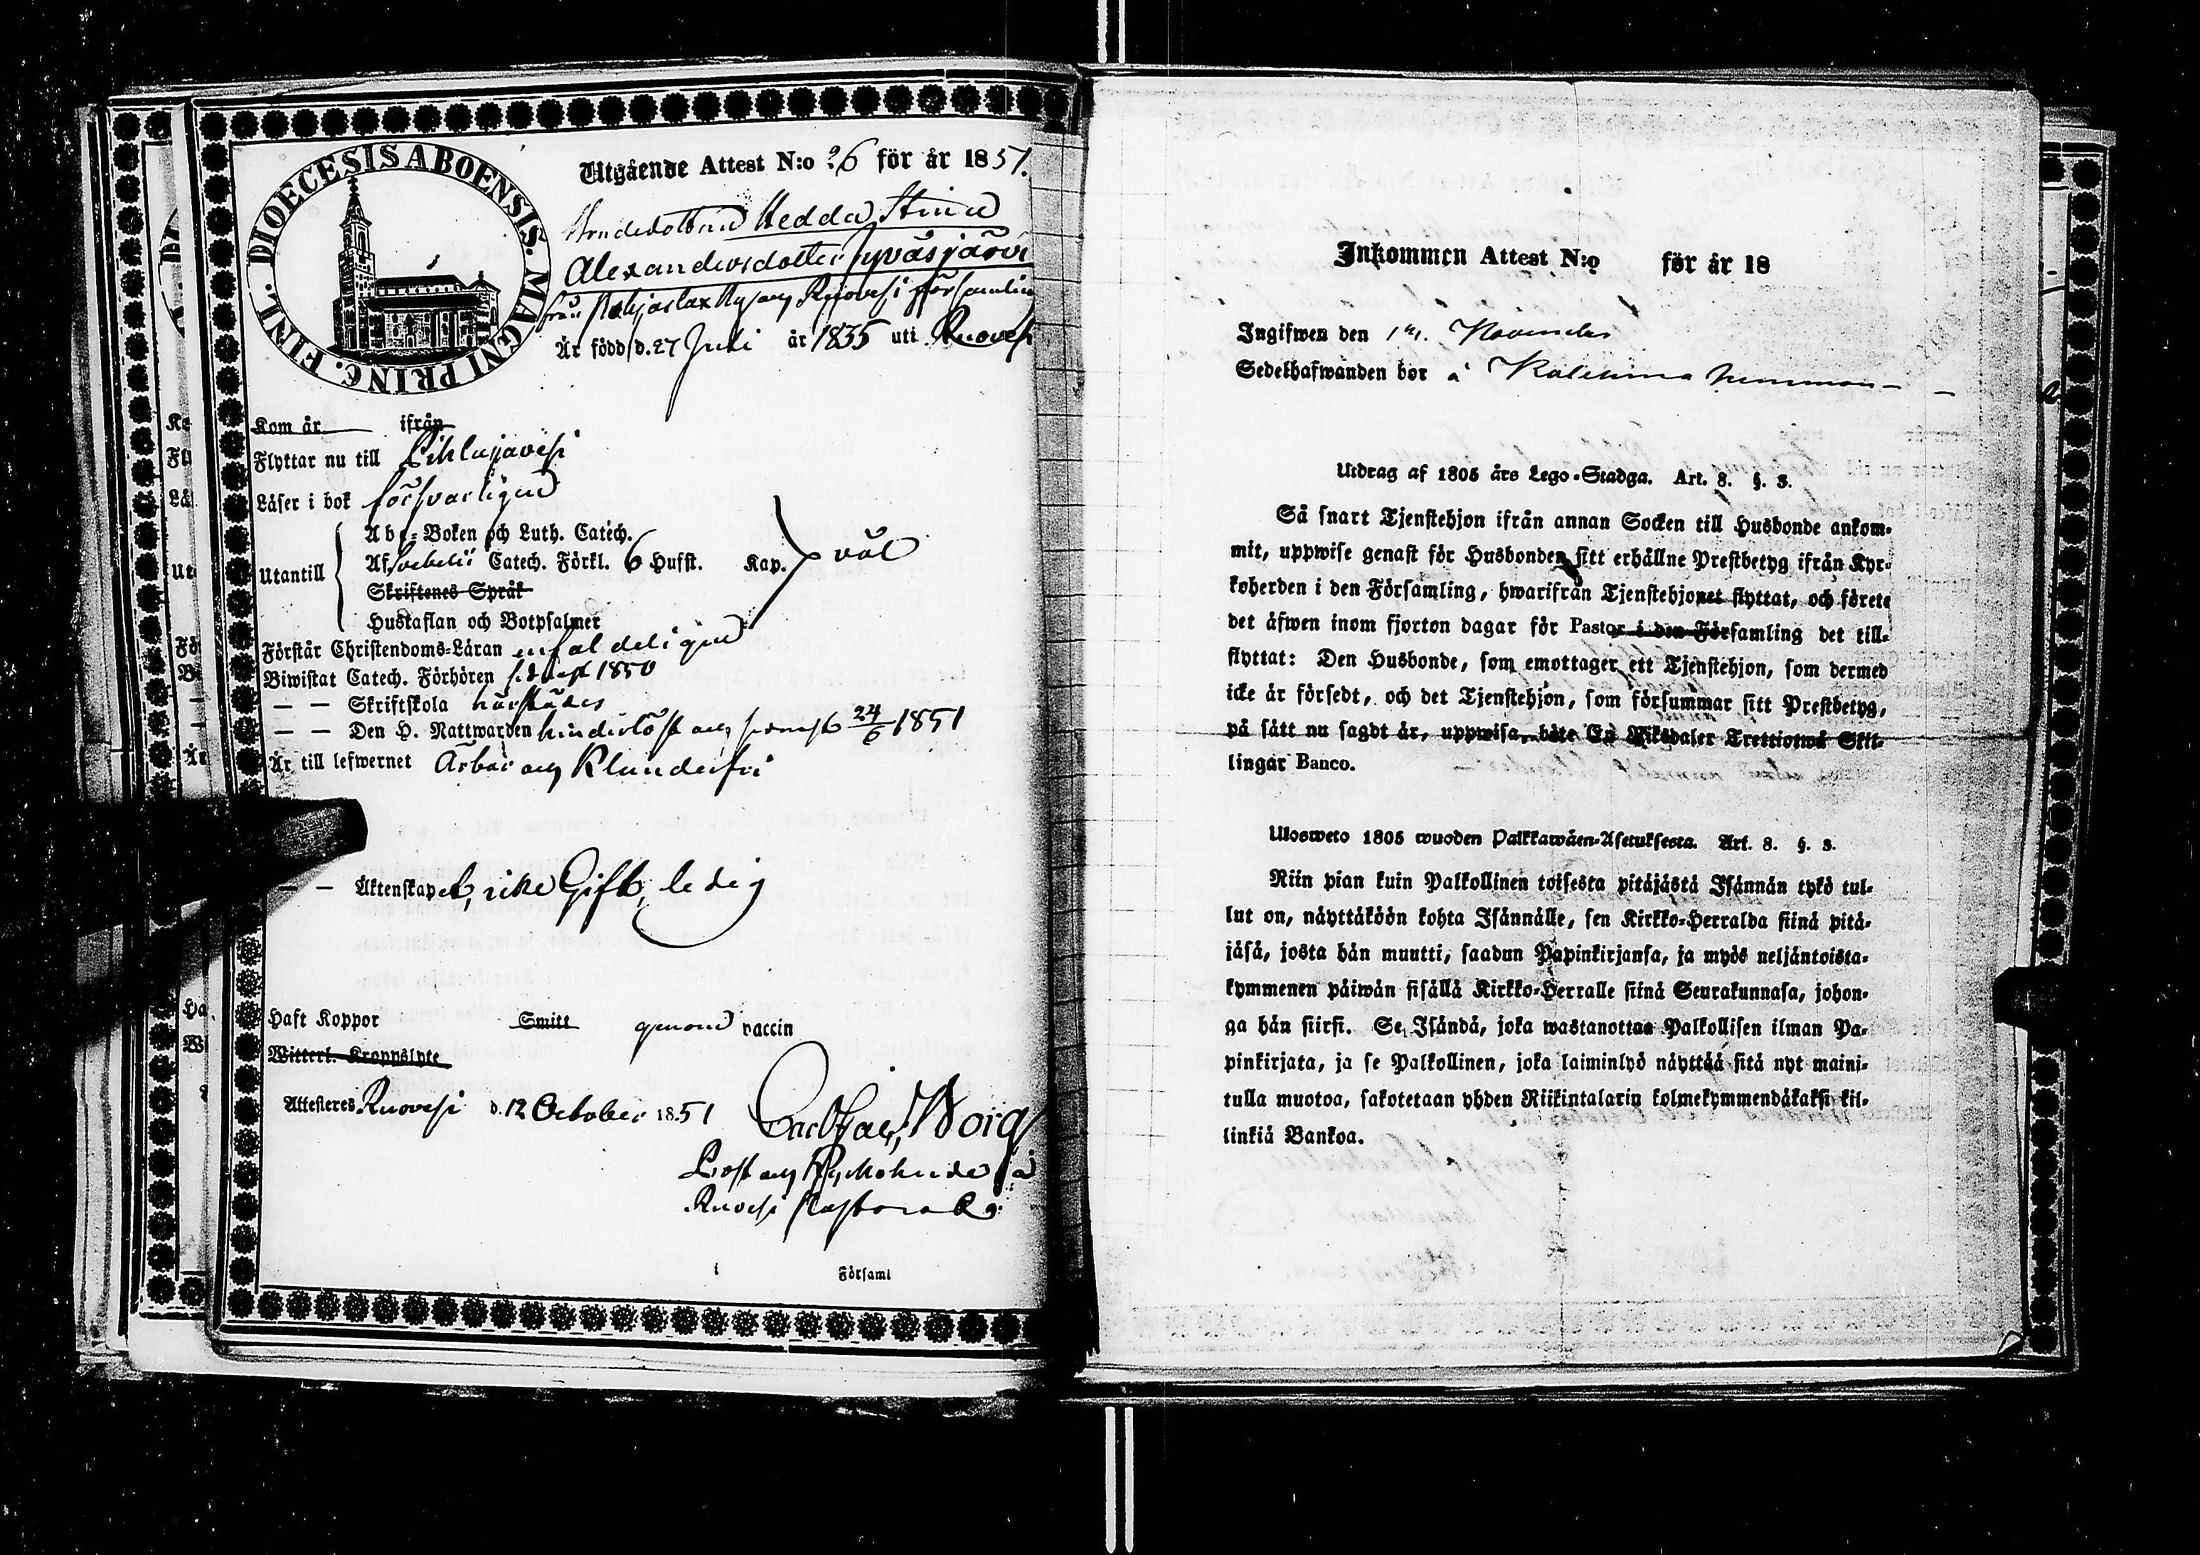 DIOECESIS ABOENSIS. MAGNI PRINC. FINL.
Utgående Attest N:o 26 för år 1851.
Bondedottren Hedda Stina
Alexandersdotter Jyväsjärvi
från Pohjaslax By och Ruovesi församlin
Är född d. 27 Juli år 1835 uti Ruovesi
Kom år ifrån
Flyttar nu till Pihlajavesi
Läser i bok försvarligen
Abc-Boken och Luth. Catech.
Utantill Af Svebelii Catech. Förkl. 6 Hufst. Kap. väl
Skriftenes Språk
Hustaflan och Botpsalmer
Förstår Christendoms-Läran enfaldeligen
Biwistat Catech. Förhören sednast 1850
— — Skriftskola härstädes
— — Den H. Nattwarden hinderlöst och senast 24/6 1851
Är till lefwernet Ärbar och Klanderfri
— — Äktenskapet, icke Gift, ledig
Haft Koppor Smitt genom vaccin
Witterl. Kroppslyte
Attesteres Ruovesi d. 12 October 1851
Borg
Prost och Kyrkoherde i
Ruovesi Pastorat
i Församl
Inkommen Attest N:o för år 18
Ingifwen den 1 November
Sedelhafwanden bor å
Utdrag af 1805 års Lego-Stadga. Art. 8. §. 3.
Så snart Tjenstehjon ifrån annan Socken till Husbonde ankom-
mit, uppwise genast för Husbonden sitt erhållne Prestbetyg ifrån Kyr-
koherden i den Församling, hwarifrån Tjenstehjonet flyttat, och förete
det äfwen inom fjorton dagar för Pastor i den Församling det till-
flyttat: Den Husbonde, som emottager ett Tjenstehjon, som dermed
icke är försedt, och det Tjenstehjon, som försummar sitt Prestbetyg,
på sätt nu sagdt är, uppwisa, böte En Riksdaler Trettiotwå Skil-
lingar Banco.
Ulosweto 1805 wuoden Palkkawäen-Asetuksesta. Art. 8. §. 3.
Niin pian kuin Palkollinen toisesta pitäjästä Isännän tykö tul-
lut on, näyttäköön kohta Isännälle, sen Kirkko-Herralda siinä pitä-
jäsä, josta hän muutti, saadun Papinkirjansa, ja myös neljäntoista-
kymmenen päiwän sisällä Kirkko-Herralle siinä Seurakunnasa, johon-
ga hän siirsi. Se Isändä, joka wastanottaa Palkollisen ilman Pa-
pinkirjata, ja se Palkollinen, joka laiminlyö näyttää sitä nyt maini-
tulla muotoa, sakotetaan yhden Riikintalarin kolmekymmendäkaksi kil-
linkiä Bankoa.